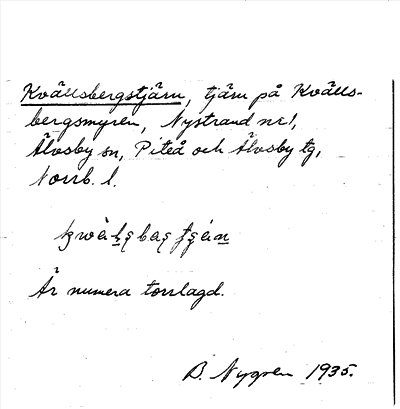 Kvällsbergstjärn, tjärn på Kvälls-
bergsmyren, Nystrand nr 1,
Älvsby sn, Piteå och Älvsby tg,
Norrb. l.
Är numera torrlagd.
B. Nygren 1935.